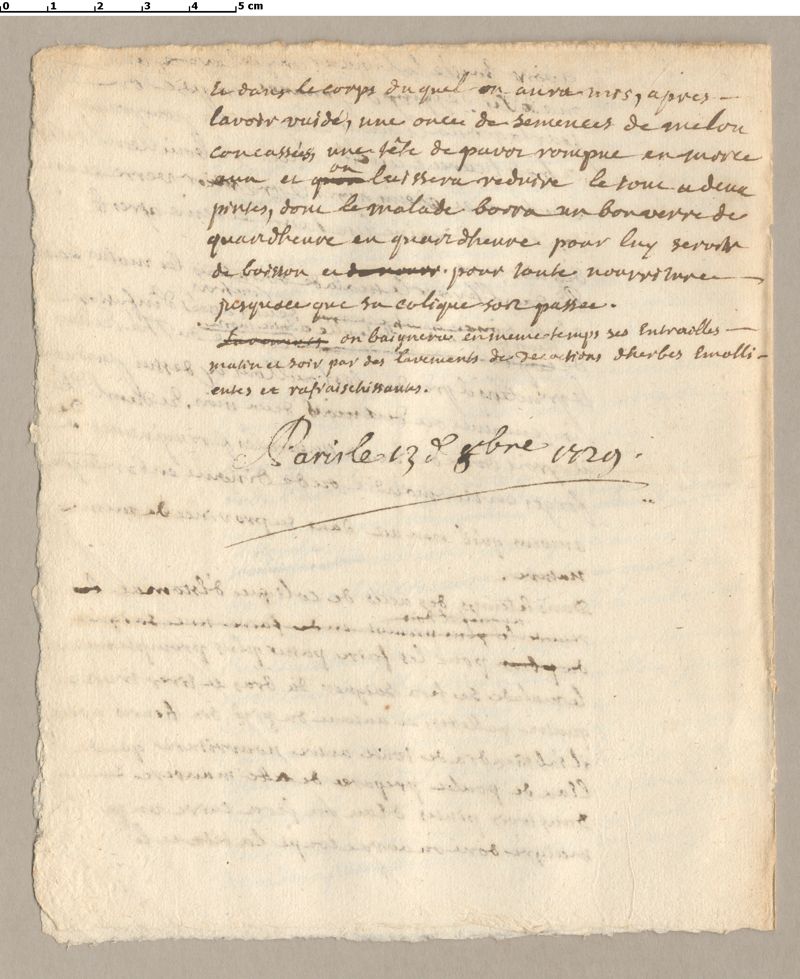 0 1 2 3 4 5 cm
Et dans le corps duquel on aura mis, apres
lavoir vuidé, une once de semences de melon
concassés, une tête de pavot rompue en morce
aux et on laissera reduire le tout a deux
pintes, dont le malade boira un bon verre de
quardheure en quardheure pour luy servir
de boisson et pour toute nourriture
jusquace que sa colique soit passee.
Lavements on baignera en meme temps ses Entrailles
matin et soir par des lavements de decoctions dherbes Emolli-
entes et rafraischissantes.
Paris le 13 d 8bre 1729.